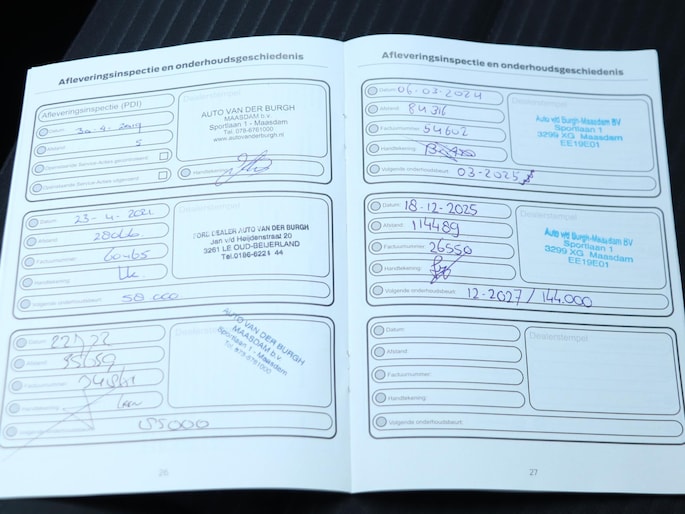 Afleveringsinspectie en onderhoudsgeschiedenis
Afleveringsinspectie (PDI)
Datum: 30-9-2019
Afstand: 5
Openstaande Service-Acties gecontroleerd
Openstaande Service-Acties uitgevoerd
Dealerstempel
AUTO VAN DER BURGH
MAASDAM b.v.
Sportlaan 1 - Maasdam
Tel. 078-6761000
www.autovanderburgh.nl
Handtekening:
Datum: 23-4-2021
Afstand:
Factuurnummer: 60465
Handtekening:
Volgende onderhoudsbeurt: 58 000
Dealerstempel
FORD DEALER AUTO VAN DER BURGH
Jan v/d Heijdenstraat 20
3261 LE OUD-BEIJERLAND
Tel. 0186-6221 44
Datum:
Afstand:
Factuurnummer:
Handtekening:
Dealerstempel
AUTO VAN DER BURGH
MAASDAM b.v.
Sportlaan 1 - Maasdam
Tel. 078-6761000
26
Afleveringsinspectie en onderhoudsgeschiedenis
Datum: 06-03-2024
Afstand: 84316
Factuurnummer: 54602
Handtekening:
Volgende onderhoudsbeurt: 03-2025
Dealerstempel
Auto v/d Burgh-Maasdam BV
Sportlaan 1
3299 XG Maasdam
EE19E01
Datum: 18-12-2025
Afstand: 114489
Factuurnummer: 26550
Handtekening:
Volgende onderhoudsbeurt: 12-2027/144.000
Dealerstempel
Auto v/d Burgh-Maasdam BV
Sportlaan 1
3299 XG Maasdam
EE19E01
Datum:
Afstand:
Factuurnummer:
Handtekening:
Volgende onderhoudsbeurt:
Dealerstempel
27